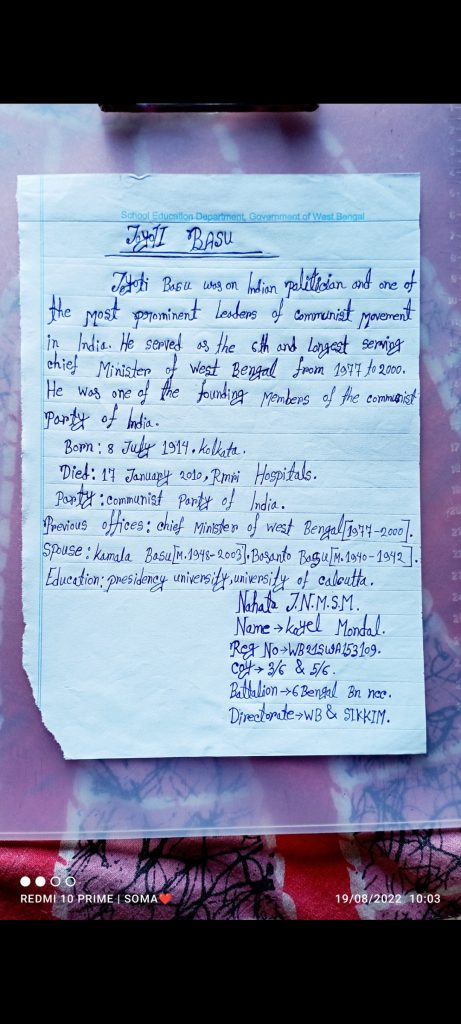 School Education Department, Government of West Bengal
Jyoti BASU
Jyoti Basu was on Indian politician and one of
the most prominent Leaders of communist movement
in India. He served as the 6th and Longest serving
chief Minister of West Bengal from 1977 to 2000.
He was one of the founding Members of the communist
Party of India.
Born: 8 July 1914, Kolkata.
Died: 17 January 2010, Rmri Hospitals.
Party: communist Party of India.
Previous offices: chief Minister of West Bengal [1977-2000].
Spouse: Kamala Basu [M. 1948-2003], Basanto Basu [M. 1940-1942].
Education: presidency university, university of calcutta.
Nahata J.N.M.S.M.
Name → Kayel Mondal.
Reg No → WB21SWA153109.
coy → 3/6 & 5/6.
Battalion → 6 Bengal Bn ncc.
Directorate → WB & SIKKIM.
REDMI 10 PRIME | SOMA❤️
19/08/2022 10:03